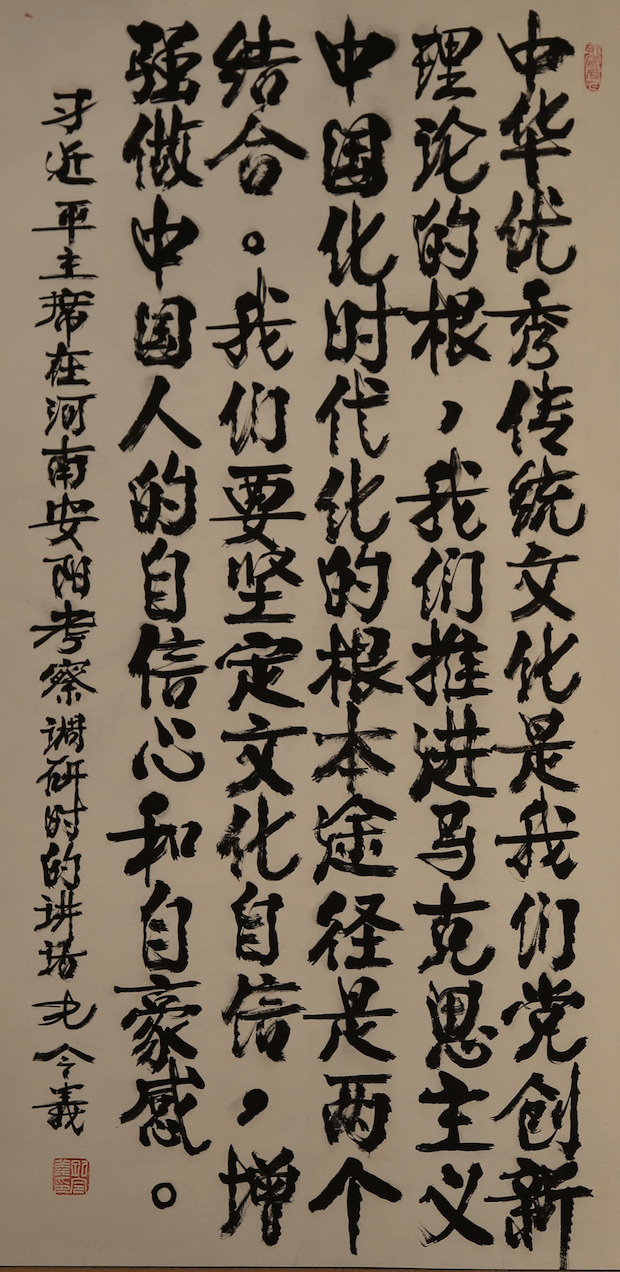 中华优秀传统文化是我们党创新
理论的根，我们推进马克思主义
中国化时代化的根本途径是两个
结合。我们要坚定文化自信，增
强做中国人的自信心和自豪感。
习近平主席在河南安阳考察调研时的讲话 尤令义